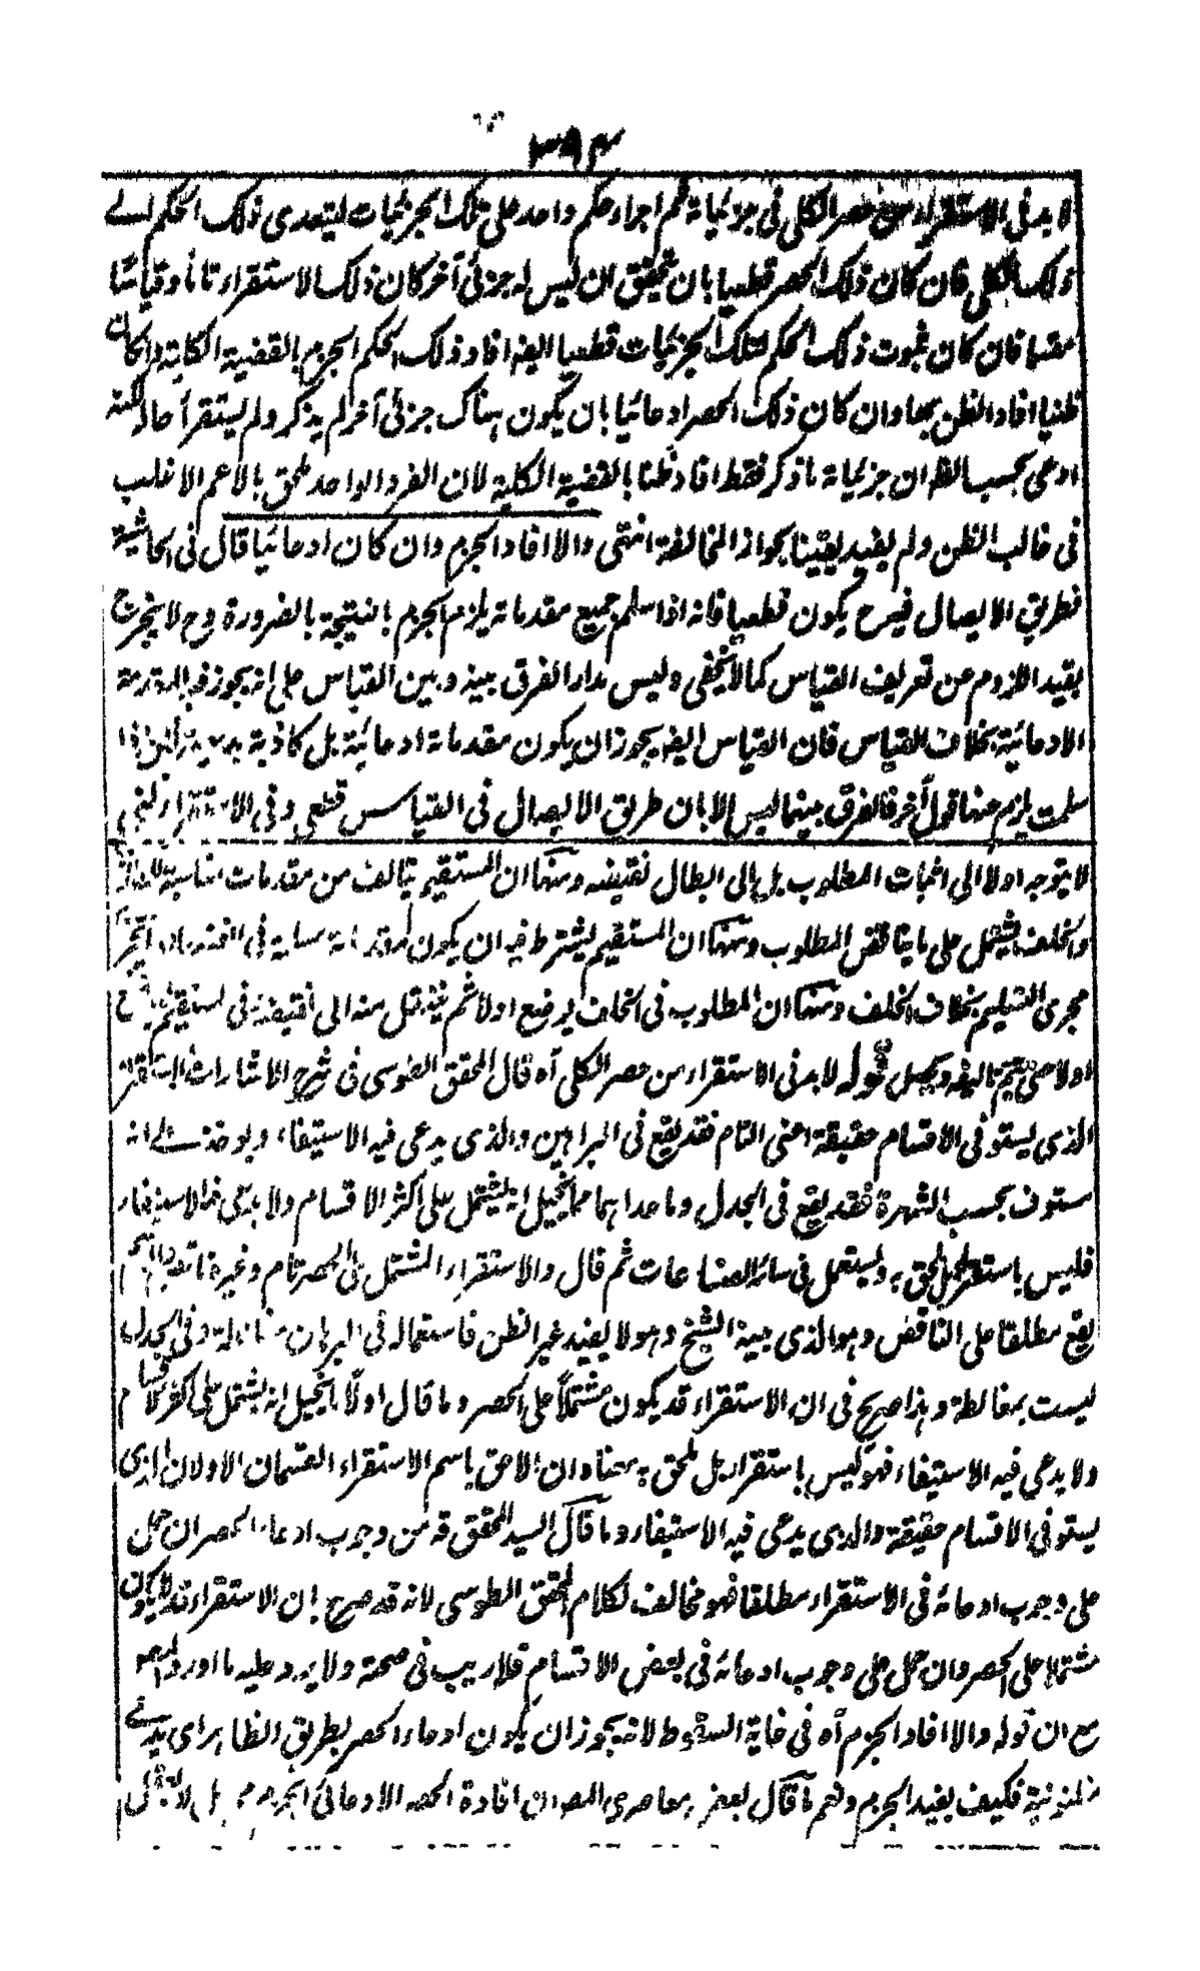 ٣٩٤
لا بد فى الاستقراء من حصر الكلى فى جزئياته ثم اجراء حكم واحد على تلك الجزئيات ليتعدى ذلك الحكم الے
ذلك الكلى فان كان ذلك الحصر قطعيا بان تحقق ان ليس له جزئى آخر كان ذلك الاستقراء تاما وقياسًا
مقسما فان كان ثبوت ذلك الحكم لتلك الجزئيات قطعيا ايضا افاد ذلك الحكم الجزم بالقضية الكلية وان كان
ظنيا افاد الظن بها وان كان ذلك الحصر ادعائيا بان يكون هناك جزئى آخر لم يذكر ولم يستقرأ حاله لكنه
ادعى بحسب الظ ان جزئياته ما ذكر فقط افاد ظنا بالقضية الكلية لان الفرد الواحد ملحق بالاعم الاغلب
فى غالب الظن ولم يفيد يقينا بجواز المخالفة انتهى والا افاد الجزم وان كان ادعائيا قال فى الحاشية
فطريق الايصال فيه ح يكون قطعيا فانه اذا سلم جميع مقدماته يلزم الجزم بالنتيجة بالضرورة وح لا يخرج
بقيد اللزوم من تعريف القياس كما لا يخفى وليس مدار الفرق بينه وبين القياس على انه يجوز فيه المقدمة
الادعائية بخلاف القياس فان القياس ايضه يجوز ان يكون مقدماته ادعائية بل كاذبة بديهية لكن اذا
سلمت يلزم عنها قول آخر فالفرق بينهما ليس الا بان طريق الايصال فى القياس قطعى وفى الاستقراء ظنى
لا يتوجه اولا الى اثبات المطلوب بل الى ابطال نقيضه ومنها ان المستقيم يتالف من مقدمات مناسبة للمطلوب
والخلف يشتمل على ما يناقض المطلوب ومنها ان المستقيم يشترط فيه ان يكون مقدماته مسلمة فى انفسها او ما يجرى
مجرى التسليم بخلاف الخلف ومنها ان المطلوب فى الخلف يوضع اولا ثم ينتقل منه الى نقيضه وفى المستقيم لا يوضع
اولا حتى يتم تاليفه ويحصل قوله لا بد فى الاستقراء من حصر الكلى آه قال المحقق الطوسى فى شرح الاشارات الاستقراء
الذى يستوفى الاقسام حقيقة اعنى التام فقد يقع فى البراهين والذى يدعى فيه الاستيفاء ويؤخذ على انه
مستوف بحسب الشهرة فقد يقع فى الجدل وما عداهما مما يخيل انه يشتمل على اكثر الاقسام ولا يدعى فيه الاستيفاء
فليس باستقراء بل يلحق به ويستعمل فى سائر الصناعات ثم قال والاستقراء المشتمل على الحصر تام وغيره ناقص والاسم
يقع مطلقا على الناقص وهو الذى بينه الشيخ وهو لا يفيد غير الظن فاستعماله فى البرهان مغالطة وفى الجدل
ليست بمغالطة وهذا صريح فى ان الاستقراء قد يكون مشتملاً على الحصر وما قال اولا ما يخيل انه يشتمل على اكثر الاقسام
ولا يدعى فيه الاستيفاء فهو ليس باستقراء بل ملحق به معناه ان الاحق باسم الاستقراء القسمان الاولان الذى
يستوفى الاقسام حقيقة والذى يدعى فيه الاستيفاء وما قال السيد المحقق قه من وجوب ادعاء الحصر ان حمل
على وجوب ادعائه فى الاستقراء مطلقا فهو مخالف لكلام المحقق الطوسى لانه قد صرح بان الاستقراء قد لا يكون
مشتملا على الحصر وان حمل على وجوب ادعائه فى بعض الاقسام فلا ريب فى صحته ولا يرد عليه ما اورده المص
مع ان قوله والا افاد الجزم آه فى غاية السقوط لانه يجوز ان يكون ادعاء الحصر بطريق الظاهر اى يدعے
مظنونية فكيف يفيد الجزم ونعم ما قال بعض معاصرى المص ان افادة الحصر الادعائى الجزم